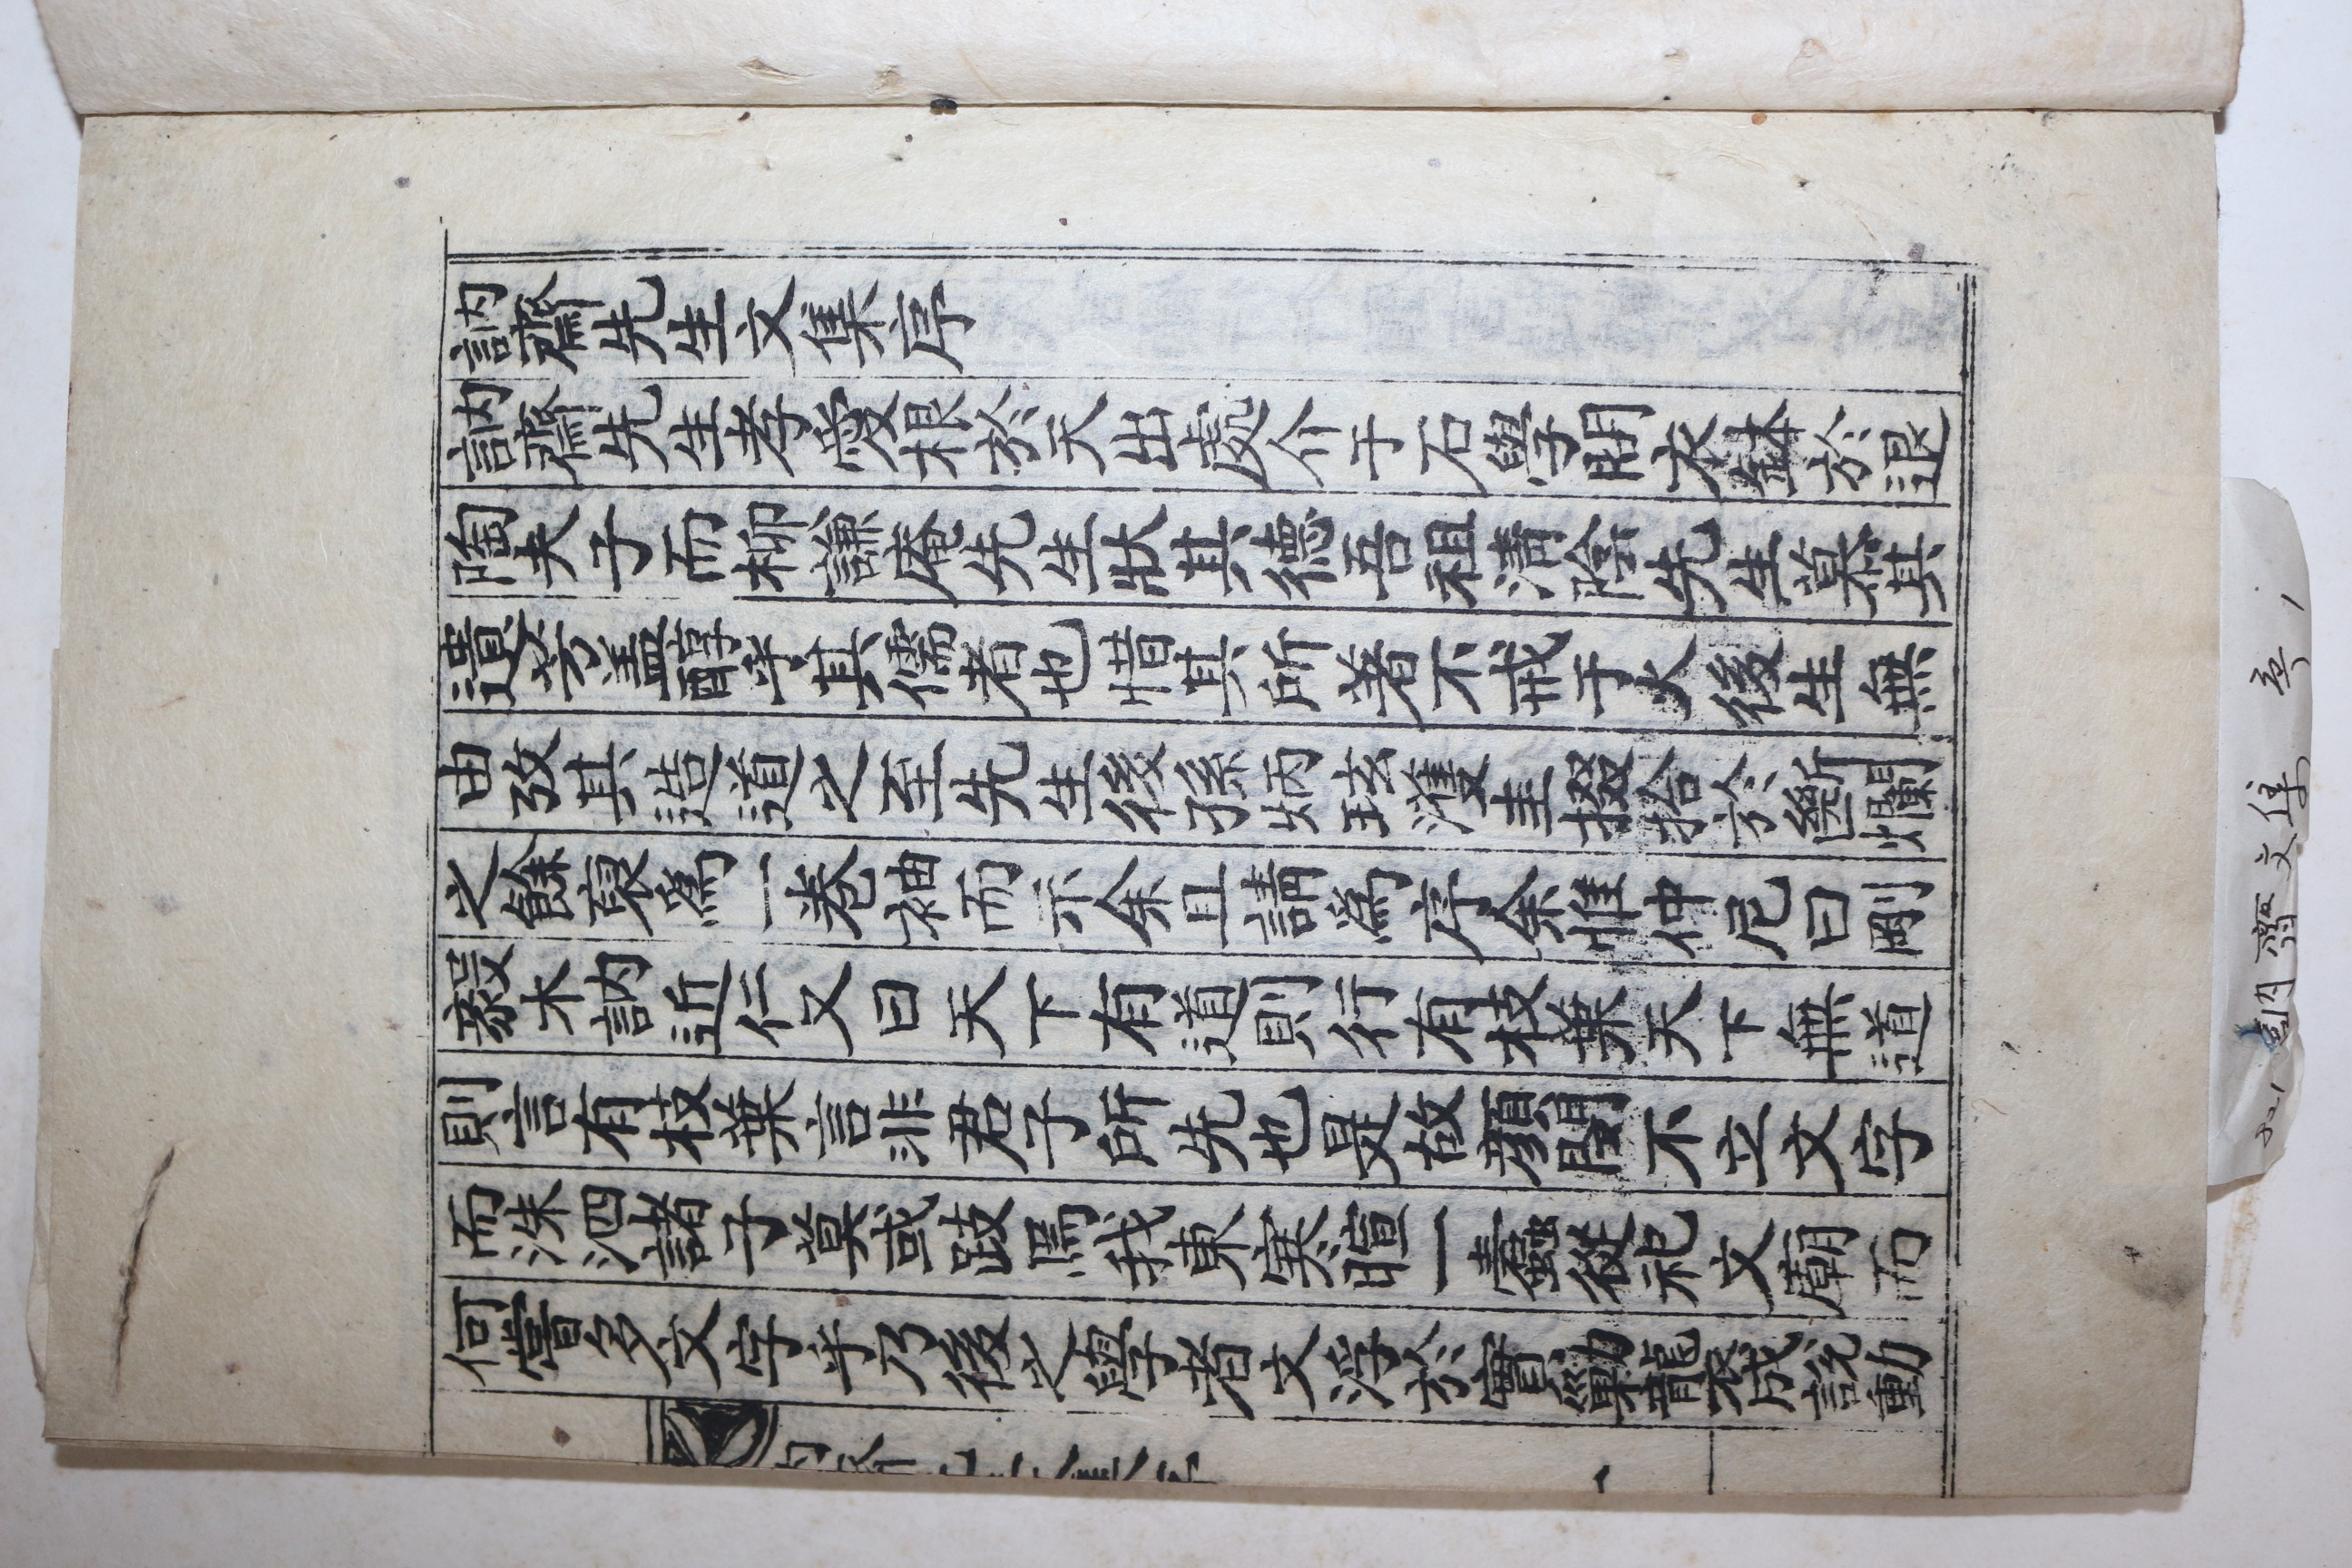 訥齋先生文集序
訥齋先生孝愛根於天出處介于石學問衣鉢於退
陶夫子而柳謙庵先生狀其德吾祖清陰先生慕其
遺芳盖醇乎其儒者也惜其所著不戒于火後生無
由攷其造道之至先生後孫炳玹濩圭掇拾於斷爛
之餘裒爲一卷袖而示余且請爲序余惟仲尼曰剛
毅木訥近仁又曰天下有道則行有枝葉天下無道
則言有枝葉言非君子所先也是故顔閔不立文字
而洙泗諸子莫或跂焉我東寒暄一蠹從祀文廟而
何嘗多文字乎乃後之學者文浮於實勦襲成說動
訥齋文集